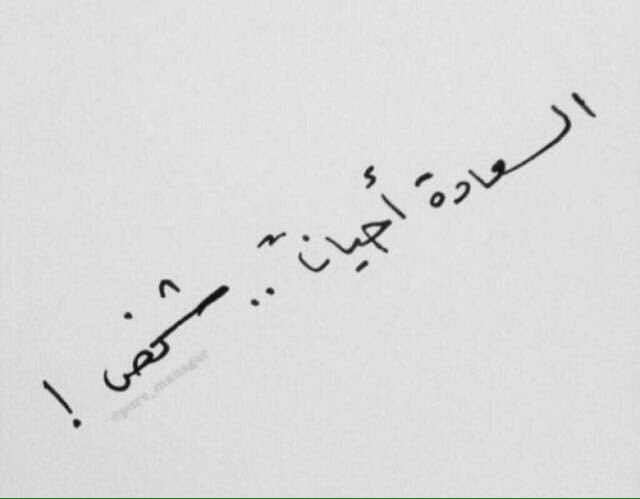 السعادة أحيانًا .. شخص !
@pure_manager